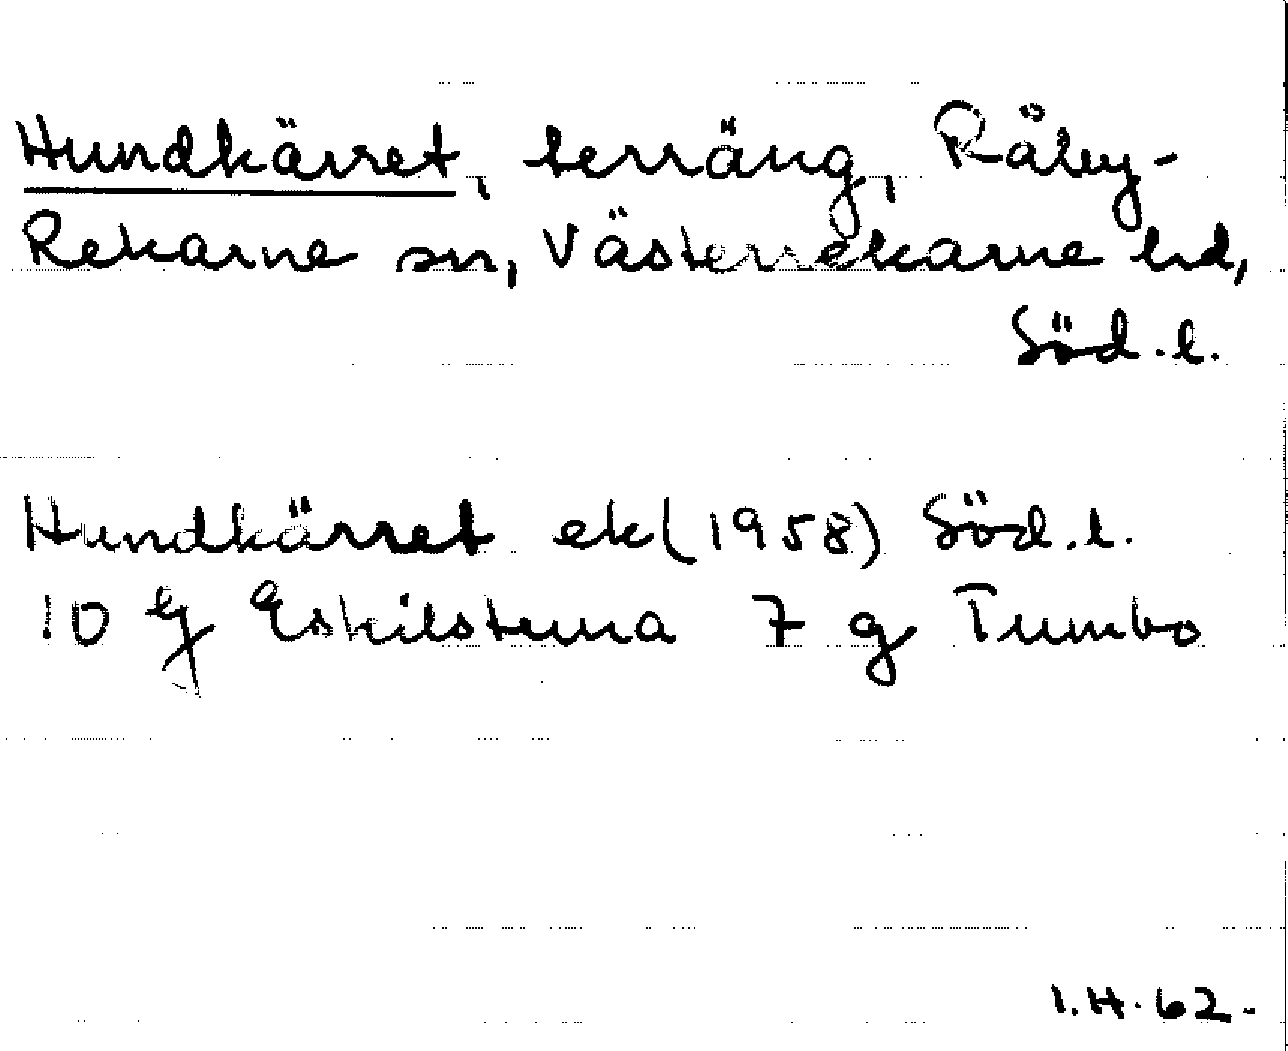 Hundkärret, terräng, Råby-
Rekarne sn, Västerrekarne hd,
Söd.l.
Hundkärret ek (1958) Söd.l.
10 g Eskilstuna 7 g Tumbo
I.H.62.